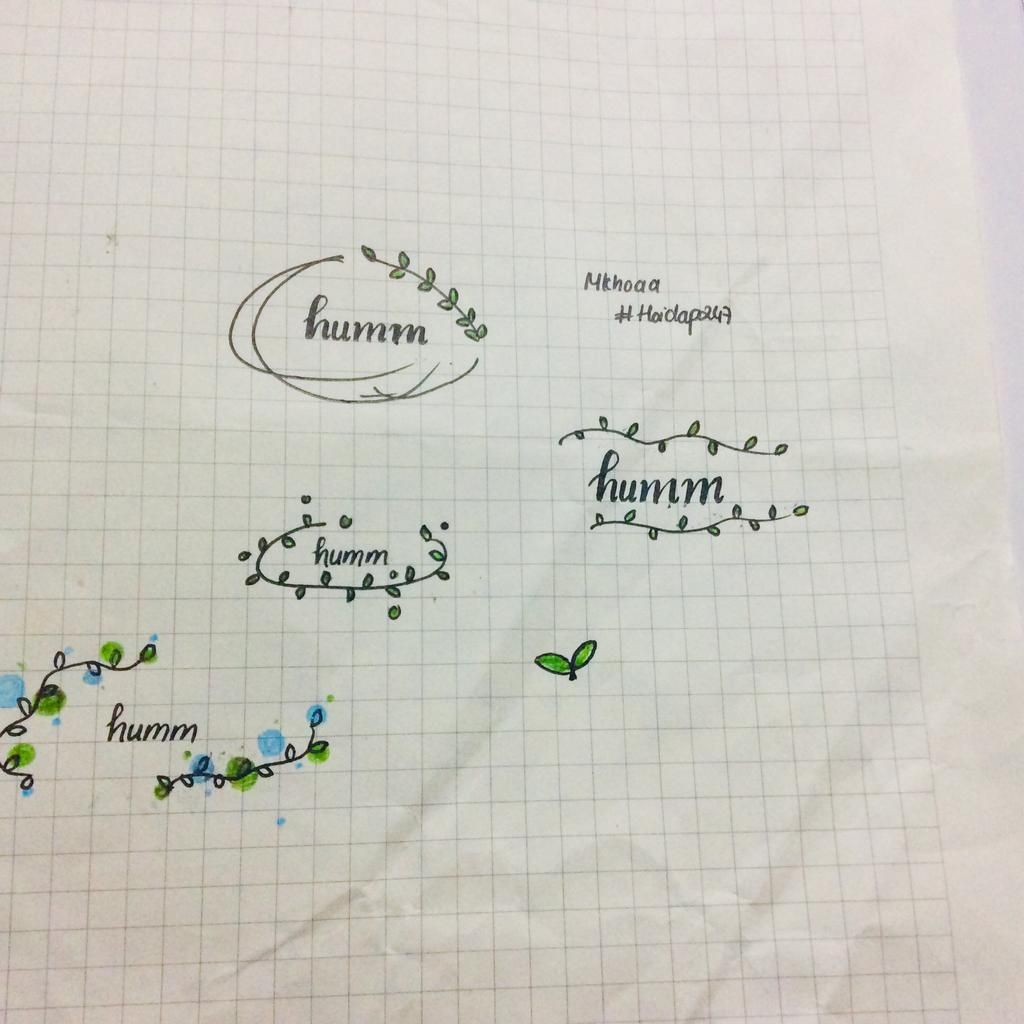 humm
Mkhoaa
#Haidap247
humm
humm
humm